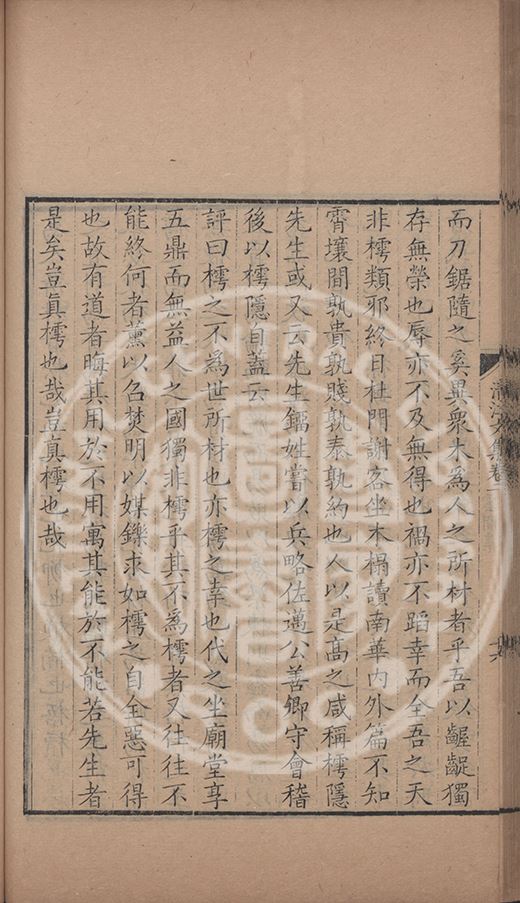 而刀鋸隨之奚異衆木爲人之所材者乎吾以齷齪獨
存無榮也辱亦不及無得也禍亦不蹈幸而全吾之天
非樗類邪終日杜門謝客坐木榻讀南華內外篇不知
霄壤間孰貴孰賤孰泰孰約也人以是髙之咸稱樗隱
先生或又云先生鐂姓嘗以兵略佐邁公善卿守會稽
後以樗隱自蓋云
評曰樗之不爲世所材也亦樗之幸也代之坐廟堂享
五鼎而無益人之國獨非樗乎其不爲樗者又往往不
能終何者薰以召焚明以媒鑠求如樗之自全惡可得
也故有道者晦其用於不用寓其能於不能若先生者
是矣豈真樗也哉豈真樗也哉